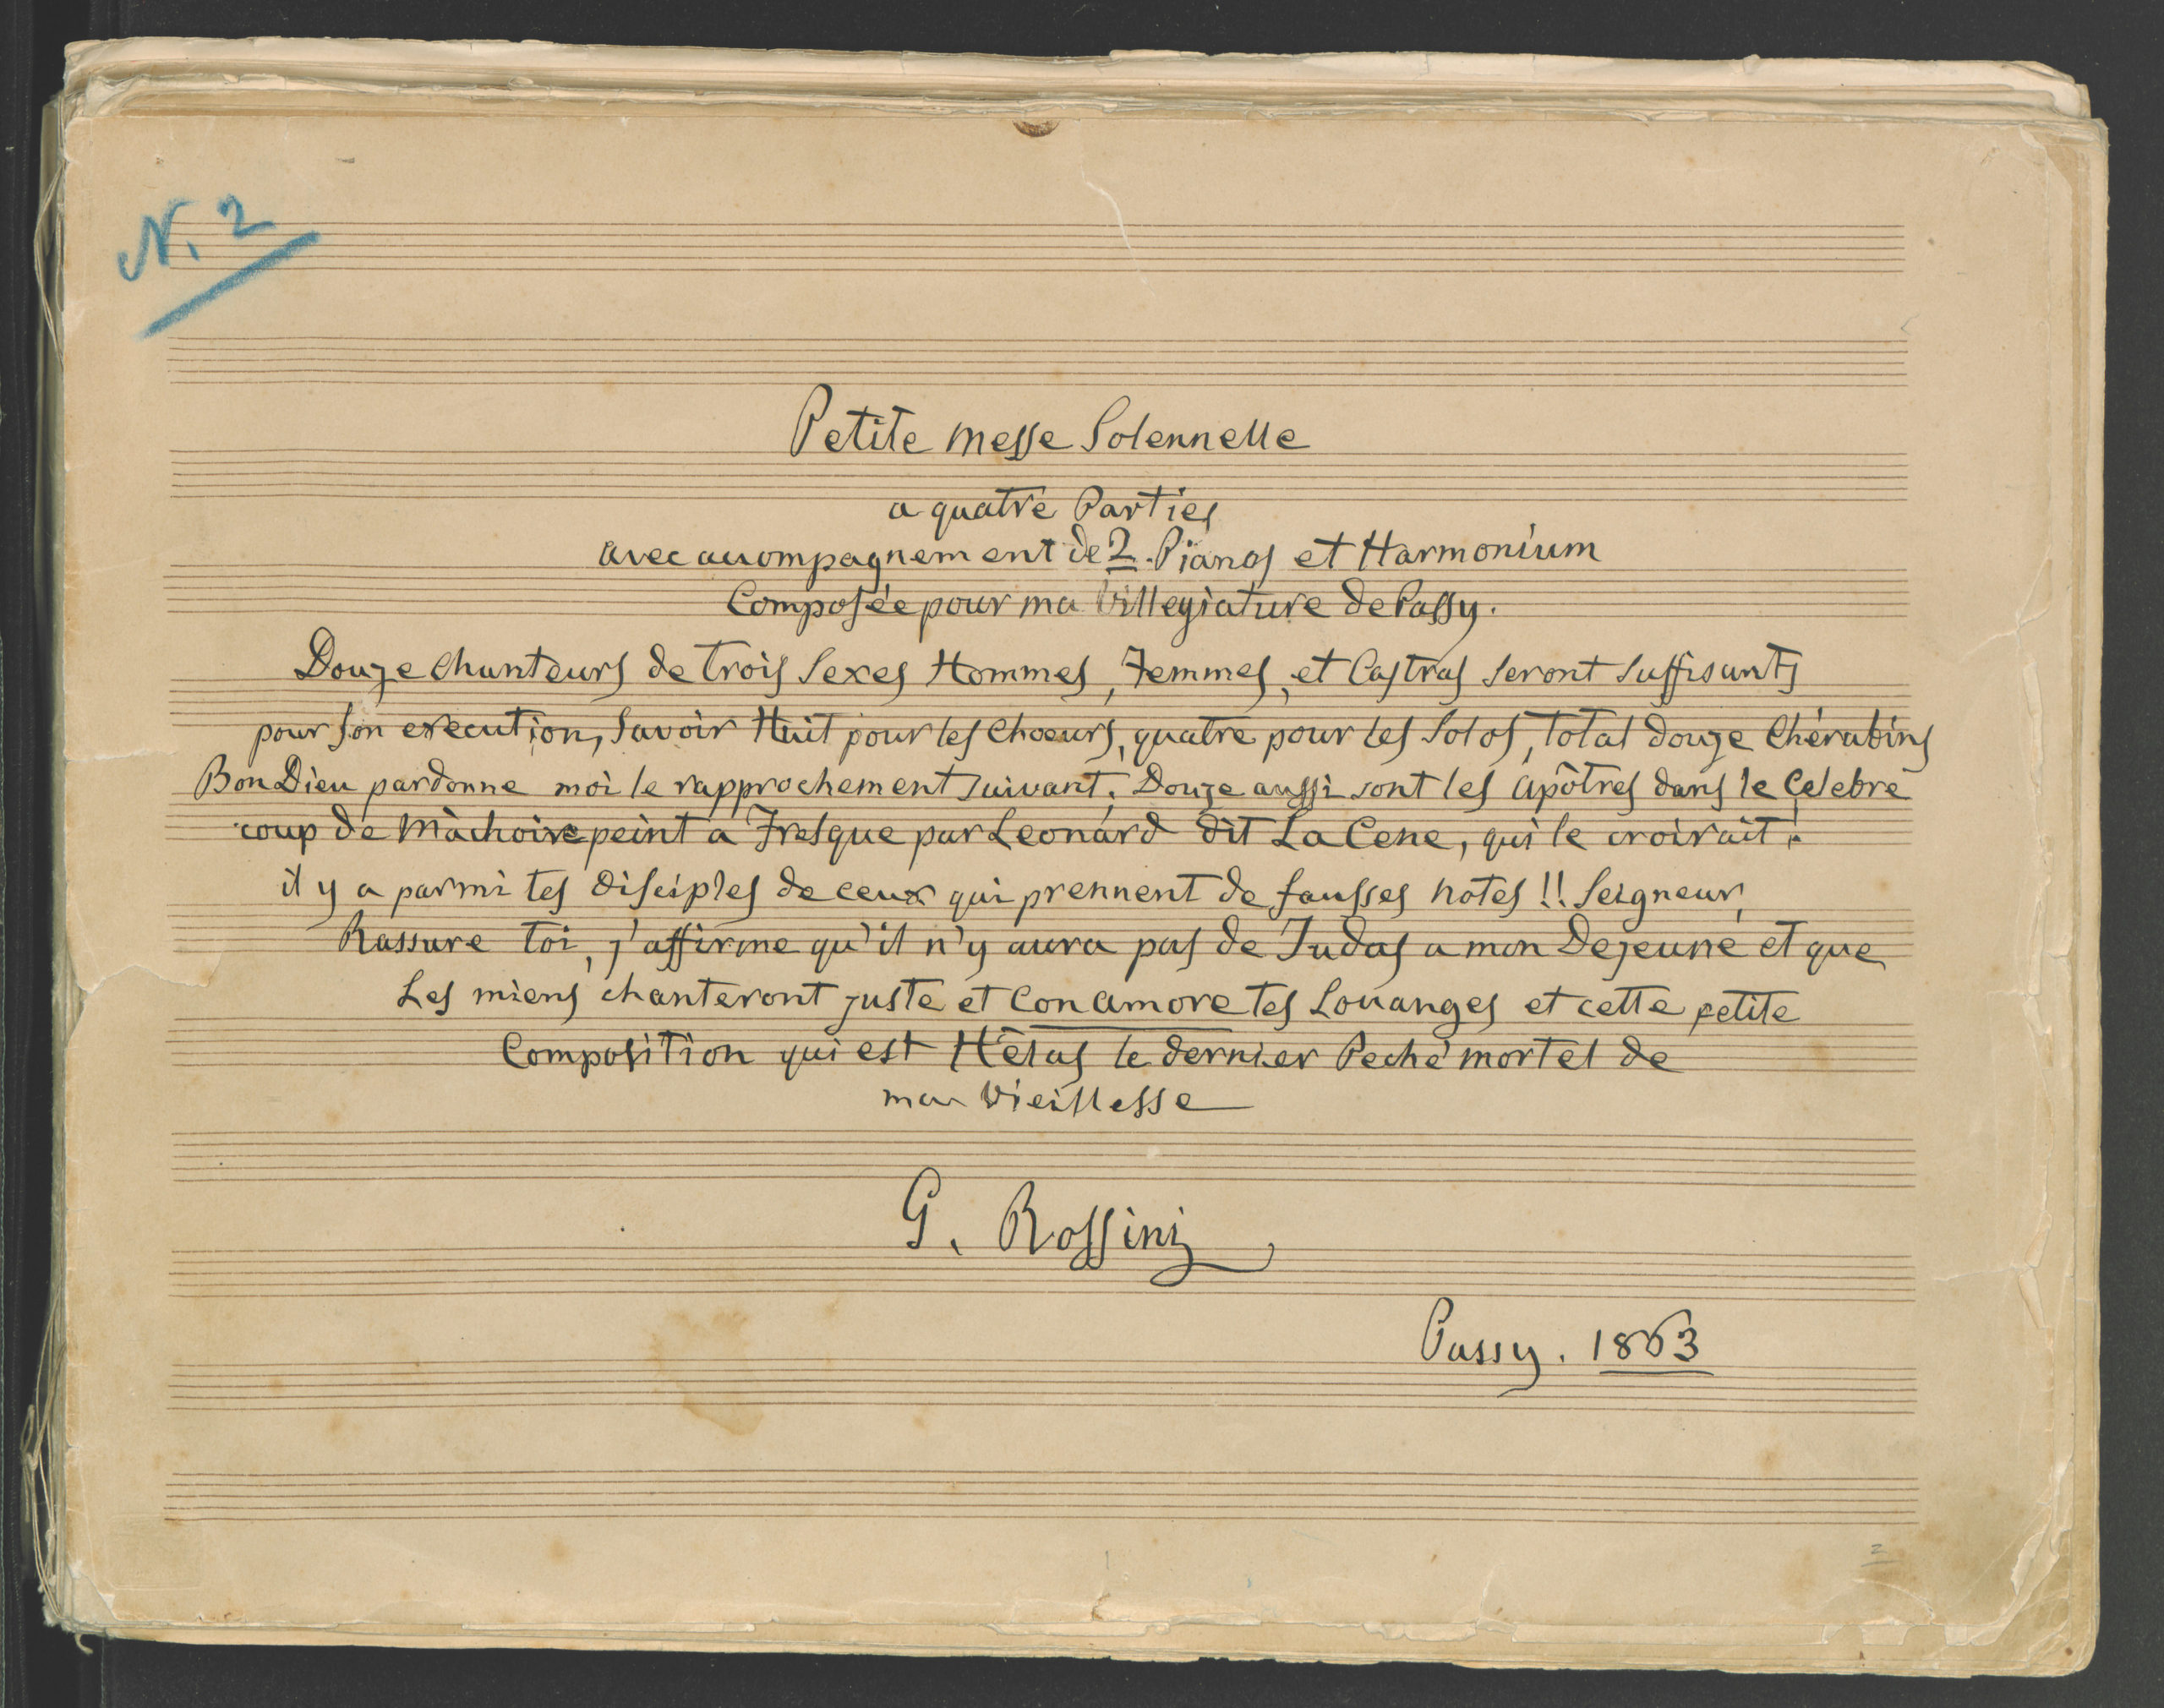 N. 2
Petite messe Solennelle
a quatre Parties
avec accompagnement de 2 Pianos et Harmonium
Composée pour ma villegiature de Passy.
Douze chanteurs de trois Sexes Hommes, Femmes, et Castras seront suffisants
pour son execution, Savoir Huit pour les Choeurs, quatre pour les Solos, total douze Chérubins
Bon Dieu pardonne moi le rapprochement suivant. Douze aussi sont les apôtres dans le Celebre
coup de mâchoire peint a Fresque par Leonard dit La Cene, qui le croirait!
il y a parmi tes Disciples de ceux qui prennent de fausses notes!! Seigneur,
Rassure toi, j'affirme qu'il n'y aura pas de Judas a mon Dejeuné et que
Les miens chanteront juste et Con amore tes Louanges et cette petite
Composition qui est Hélas le dernier Peché mortel de
ma vieillesse
G. Rossini
Passy. 1863
2